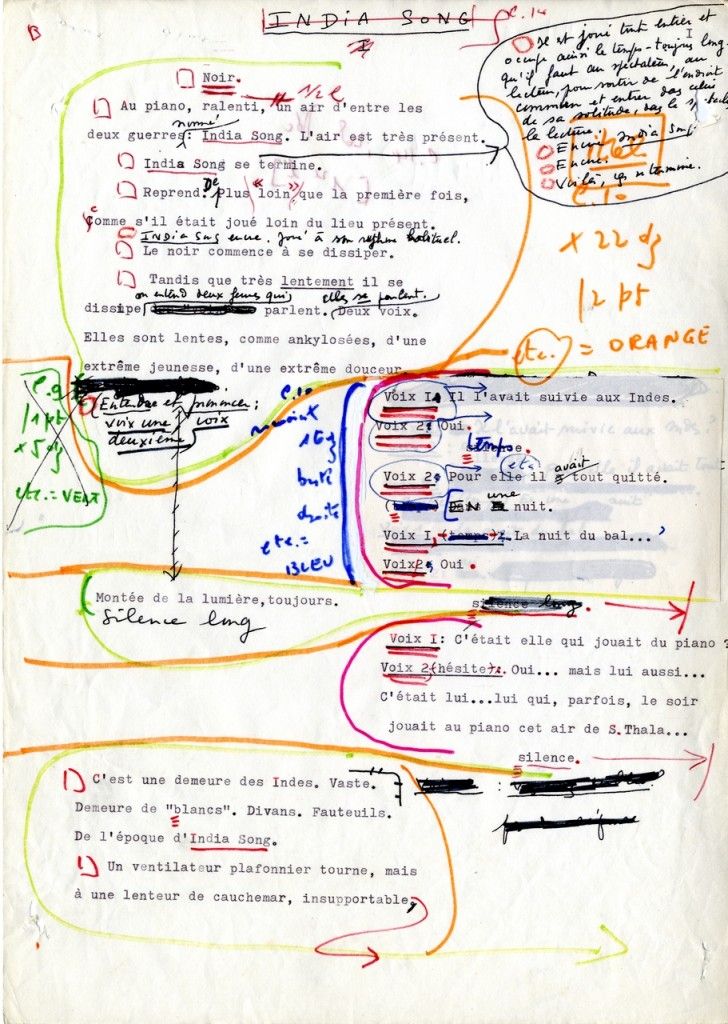 B
INDIA SONG
I
c.10
Il est joué tout entier et
occupe ainsi le temps - toujours long -
qu'il faut au spectateur, au
lecteur, pour sortir de l'endroit
commun et entrer dans celui
de sa solitude, dans le spectacle
la lecture.
Encore India Song
Encore.
Voilà, ça se termine.
Noir.
Au piano, ralenti, un air d'entre les
nommé
deux guerres: India Song. L'air est très présent.
India Song se termine.
Reprend. De Plus "loin" que la première fois,
comme s'il était joué loin du lieu présent.
India Song encore. Joué à son rythme habituel.
Le noir commence à se dissiper.
Tandis que très lentement il se
on entend deux femmes qui elles se parlent.
dissipe parlent. Deux voix.
Elles sont lentes, comme ankylosées, d'une
extrême jeunesse, d'une extrême douceur
c.10
x 22 dz
12 pt
etc. = ORANGE
c.9
11 pt
x 5 dz
etc. = VERT
une voix
deuxième voix
c.10
droite
etc. =
BLEU
Voix I. Il l'avait suivie aux Indes.
Voix 2: Oui.
silence.
temps
Voix 2: Pour elle il avait tout quitté.
EN une nuit.
Voix I (temps): La nuit du bal...
Voix 2: Oui.
Montée de la lumière, toujours.
Silence long
silence long.
Voix I: C'était elle qui jouait du piano ?
Voix 2 (hésite): Oui... mais lui aussi...
C'était lui...lui qui, parfois, le soir
jouait au piano cet air de S.Thala...
silence.
C'est une demeure des Indes. Vaste.
Demeure de "blancs". Divans. Fauteuils.
De l'époque d'India Song.
Un ventilateur plafonnier tourne, mais
à une lenteur de cauchemar, insupportable,